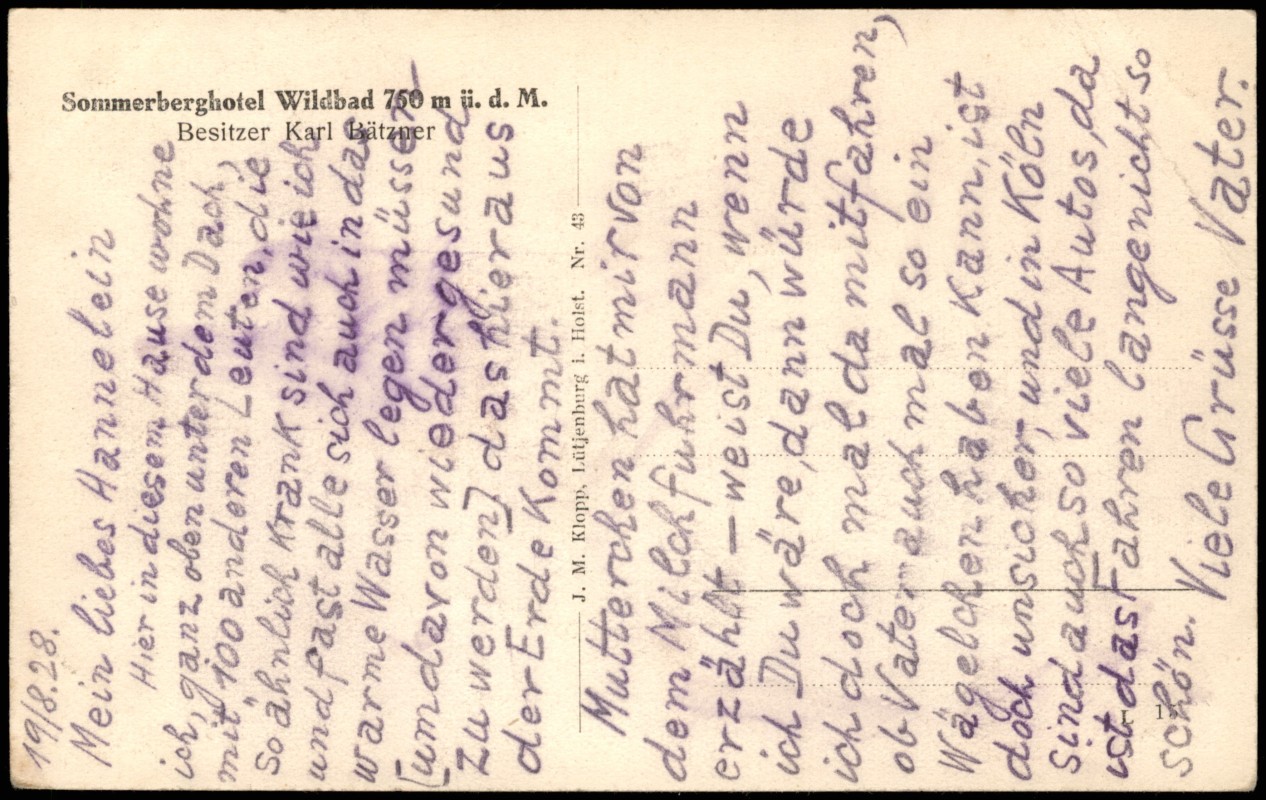 Sommerberghotel Wildbad 750 m ü. d. M.
Besitzer Karl Bätzner
J. M. Klopp, Lütjenburg i. Holst. Nr. 43
19/8.28.
Mein liebes Hannelein
Hier in diesem Hause wohne
ich, ganz oben unter dem Dach,
mit 100 anderen Leuten, die
so ähnlich krank sind wie ich
und fast alle sich auch in das
warme Wasser legen müssen -
[um davon wieder gesund
zu werden] das hier aus
der Erde kommt.
Mutterchen hat mir von
dem Milchfuhrmann
erzählt – weist Du, wenn
ich Du wäre, dann würde
ich doch mal da mitfahren,
ob Vater auch mal so ein
Wägelchen haben kann, ist
doch unsicher, und in Köln
sind auch so viele Autos, da
ist das Fahren lange nicht so
schön. Viele Grüsse Vater.